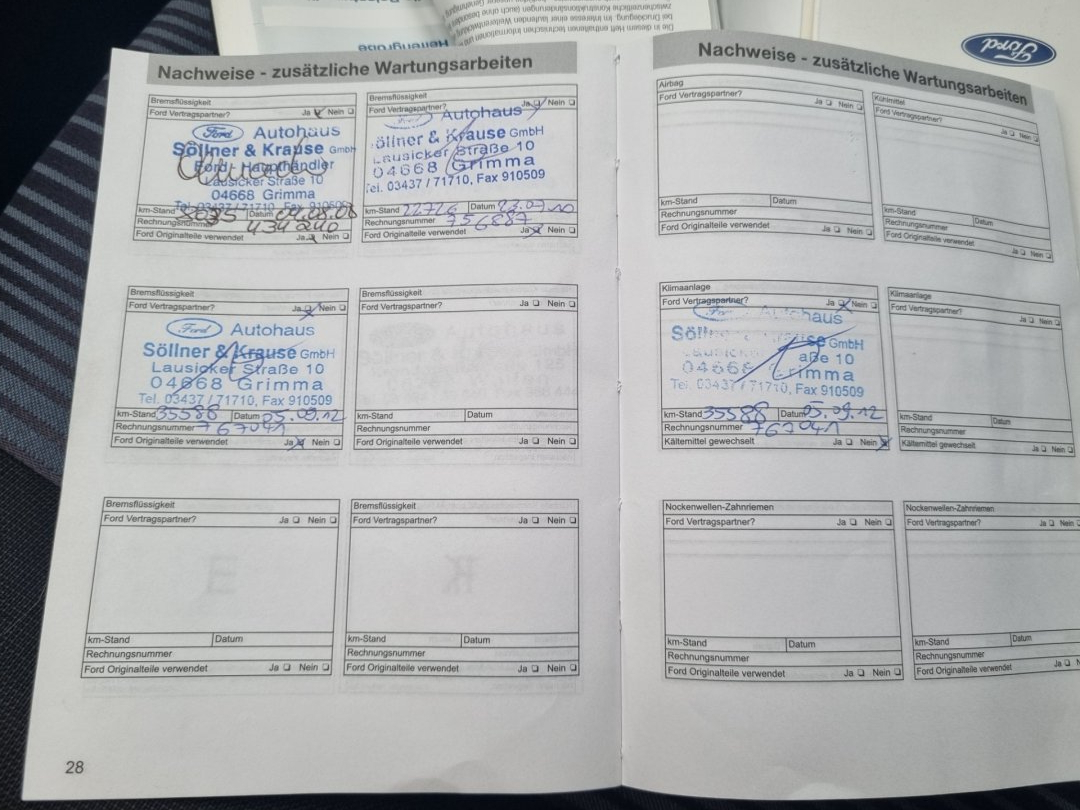 Die in diesem Heft enthaltenen technischen Informationen
bei Drucklegung. Im Interesse einer laufenden Weiterentwicklung
Ford
Nachweise - zusätzliche Wartungsarbeiten
Bremsflüssigkeit
Ford Vertragspartner? Ja Nein
Ford Autohaus
Söllner & Krause GmbH
Ford-Haupthändler
Lausicker Straße 10
04668 Grimma
Tel. 03437/71710, Fax 910509
km-Stand Datum 04.08.08
Rechnungsnummer 434240
Ford Originalteile verwendet Ja Nein
Bremsflüssigkeit
Ford Vertragspartner? Ja Nein
Autohaus
öllner & Krause GmbH
Lausicker Straße 10
04668 Grimma
Tel. 03437/71710, Fax 910509
km-Stand 22726 Datum 23.07.10
Rechnungsnummer 756887
Ford Originalteile verwendet Ja Nein
Bremsflüssigkeit
Ford Vertragspartner? Ja Nein
Ford Autohaus
Söllner & Krause GmbH
Lausicker Straße 10
04668 Grimma
Tel. 03437/71710, Fax 910509
km-Stand 35588 Datum 05.09.12
Rechnungsnummer 767041
Ford Originalteile verwendet Ja Nein
Bremsflüssigkeit
Ford Vertragspartner? Ja Nein
km-Stand Datum
Rechnungsnummer
Ford Originalteile verwendet Ja Nein
Bremsflüssigkeit
Ford Vertragspartner? Ja Nein
km-Stand Datum
Rechnungsnummer
Ford Originalteile verwendet Ja Nein
Bremsflüssigkeit
Ford Vertragspartner? Ja Nein
km-Stand Datum
Rechnungsnummer
Ford Originalteile verwendet Ja Nein
28
Nachweise - zusätzliche Wartungsarbeiten
Airbag
Ford Vertragspartner? Ja Nein
km-Stand Datum
Rechnungsnummer
Ford Originalteile verwendet Ja Nein
Kühlmittel
Ford Vertragspartner? Ja Nein
km-Stand Datum
Rechnungsnummer
Ford Originalteile verwendet Ja Nein
Klimaanlage
Ford Vertragspartner? Ja Nein
Ford Autohaus
Söll use GmbH
aße 10
04668 Grimma
Tel. 03437/71710, Fax 910509
km-Stand 35588 Datum 05.09.12
Rechnungsnummer 767041
Kältemittel gewechselt Ja Nein
Klimaanlage
Ford Vertragspartner? Ja Nein
km-Stand Datum
Rechnungsnummer
Kältemittel gewechselt Ja Nein
Nockenwellen-Zahnriemen
Ford Vertragspartner? Ja Nein
km-Stand Datum
Rechnungsnummer
Ford Originalteile verwendet Ja Nein
Nockenwellen-Zahnriemen
Ford Vertragspartner? Ja
km-Stand Datum
Rechnungsnummer
Ford Originalteile verwendet Ja